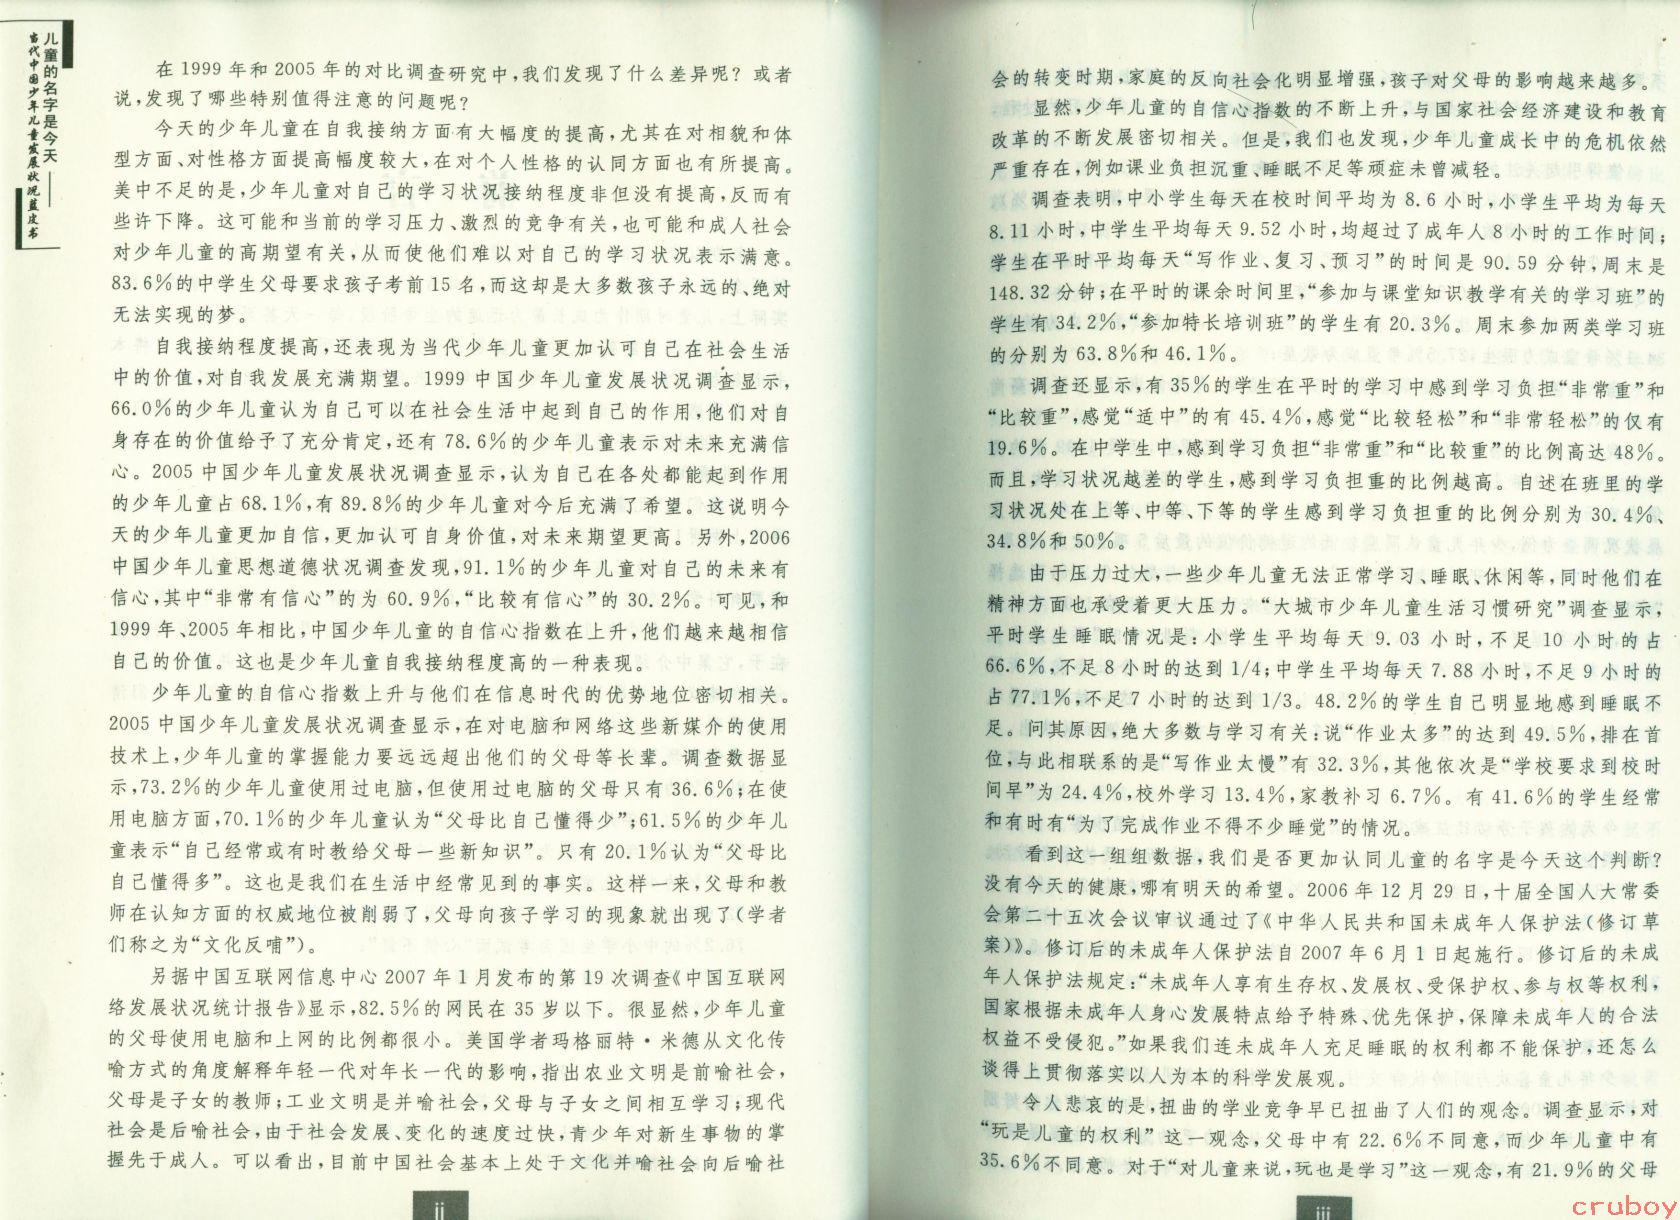 儿童的名字是今天——
当代中国少年儿童发展状况蓝皮书
在 1999 年和 2005 年的对比调查研究中,我们发现了什么差异呢? 或者
说,发现了哪些特别值得注意的问题呢?
今天的少年儿童在自我接纳方面有大幅度的提高,尤其在对相貌和体
型方面、对性格方面提高幅度较大,在对个人性格的认同方面也有所提高。
美中不足的是,少年儿童对自己的学习状况接纳程度非但没有提高,反而有
些许下降。这可能和当前的学习压力、激烈的竞争有关,也可能和成人社会
对少年儿童的高期望有关,从而使他们难以对自己的学习状况表示满意。
83.6%的中学生父母要求孩子考前15名,而这却是大多数孩子永远的、绝对
无法实现的梦。
自我接纳程度提高,还表现为当代少年儿童更加认可自己在社会生活
中的价值,对自我发展充满期望。1999 中国少年儿童发展状况调查显示,
66.0%的少年儿童认为自己可以在社会生活中起到自己的作用,他们对自
身存在的价值给予了充分肯定,还有 78.6%的少年儿童表示对未来充满信
心。2005 中国少年儿童发展状况调查显示,认为自己在各处都能起到作用
的少年儿童占 68.1%,有 89.8%的少年儿童对今后充满了希望。这说明今
天的少年儿童更加自信,更加认可自身价值,对未来期望更高。另外,2006
中国少年儿童思想道德状况调查发现,91.1%的少年儿童对自己的未来有
信心,其中“非常有信心”的为 60.9%,“比较有信心”的 30.2%。可见,和
1999 年、2005 年相比,中国少年儿童的自信心指数在上升,他们越来越相信
自己的价值。这也是少年儿童自我接纳程度高的一种表现。
少年儿童的自信心指数上升与他们在信息时代的优势地位密切相关。
2005 中国少年儿童发展状况调查显示,在对电脑和网络这些新媒介的使用
技术上,少年儿童的掌握能力要远远超出他们的父母等长辈。调查数据显
示,73.2%的少年儿童使用过电脑,但使用过电脑的父母只有 36.6%;在使
用电脑方面,70.1%的少年儿童认为“父母比自己懂得少”;61.5%的少年儿
童表示“自己经常或有时教给父母一些新知识”。只有 20.1%认为“父母比
自己懂得多”。这也是我们在生活中经常见到的事实。这样一来,父母和教
师在认知方面的权威地位被削弱了,父母向孩子学习的现象就出现了(学者
们称之为“文化反哺”)。
另据中国互联网信息中心 2007 年 1 月发布的第 19 次调查《中国互联网
络发展状况统计报告》显示,82.5%的网民在 35 岁以下。很显然,少年儿童
的父母使用电脑和上网的比例都很小。美国学者玛格丽特·米德从文化传
喻方式的角度解释年轻一代对年长一代的影响,指出农业文明是前喻社会,
父母是子女的教师;工业文明是并喻社会,父母与子女之间相互学习;现代
社会是后喻社会,由于社会发展、变化的速度过快,青少年对新生事物的掌
握先于成人。可以看出,目前中国社会基本上处于文化并喻社会向后喻社
ii
会的转变时期,家庭的反向社会化明显增强,孩子对父母的影响越来越多。
显然,少年儿童的自信心指数的不断上升,与国家社会经济建设和教育
改革的不断发展密切相关。但是,我们也发现,少年儿童成长中的危机依然
严重存在,例如课业负担沉重、睡眠不足等顽症未曾减轻。
调查表明,中小学生每天在校时间平均为 8.6 小时,小学生平均为每天
8.11 小时,中学生平均每天 9.52 小时,均超过了成年人 8 小时的工作时间;
学生在平时平均每天“写作业、复习、预习”的时间是 90.59 分钟,周末是
148.32 分钟;在平时的课余时间里,“参加与课堂知识教学有关的学习班”的
学生有 34.2%,“参加特长培训班”的学生有 20.3%。周末参加两类学习班
的分别为 63.8%和 46.1%。
调查还显示,有 35%的学生在平时的学习中感到学习负担“非常重”和
“比较重”,感觉“适中”的有 45.4%,感觉“比较轻松”和“非常轻松”的仅有
19.6%。在中学生中,感到学习负担“非常重”和“比较重”的比例高达 48%。
而且,学习状况越差的学生,感到学习负担重的比例越高。自述在班里的学
习状况处在上等、中等、下等的学生感到学习负担重的比例分别为 30.4%、
34.8%和 50%。
由于压力过大,一些少年儿童无法正常学习、睡眠、休闲等,同时他们在
精神方面也承受着更大压力。“大城市少年儿童生活习惯研究”调查显示,
平时学生睡眠情况是:小学生平均每天 9.03 小时,不足 10 小时的占
66.6%,不足 8 小时的达到 1/4;中学生平均每天 7.88 小时,不足 9 小时的
占 77.1%,不足 7 小时的达到 1/3。48.2%的学生自己明显地感到睡眠不
足。问其原因,绝大多数与学习有关:说“作业太多”的达到 49.5%,排在首
位,与此相联系的是“写作业太慢”有 32.3%,其他依次是“学校要求到校时
间早”为 24.4%,校外学习 13.4%,家教补习 6.7%。有 41.6%的学生经常
和有时有“为了完成作业不得不少睡觉”的情况。
看到这一组组数据,我们是否更加认同儿童的名字是今天这个判断?
没有今天的健康,哪有明天的希望。2006 年 12 月 29 日,十届全国人大常委
会第二十五次会议审议通过了《中华人民共和国未成年人保护法(修订草
案)》。修订后的未成年人保护法自 2007 年 6 月 1 日起施行。修订后的未成
年人保护法规定:“未成年人享有生存权、发展权、受保护权、参与权等权利,
国家根据未成年人身心发展特点给予特殊、优先保护,保障未成年人的合法
权益不受侵犯。”如果我们连未成年人充足睡眠的权利都不能保护,还怎么
谈得上贯彻落实以人为本的科学发展观。
令人悲哀的是,扭曲的学业竞争早已扭曲了人们的观念。调查显示,对
“玩是儿童的权利”这一观念,父母中有 22.6%不同意,而少年儿童中有
35.6%不同意。对于“对儿童来说,玩也是学习”这一观念,有 21.9%的父母
iii
cruboy